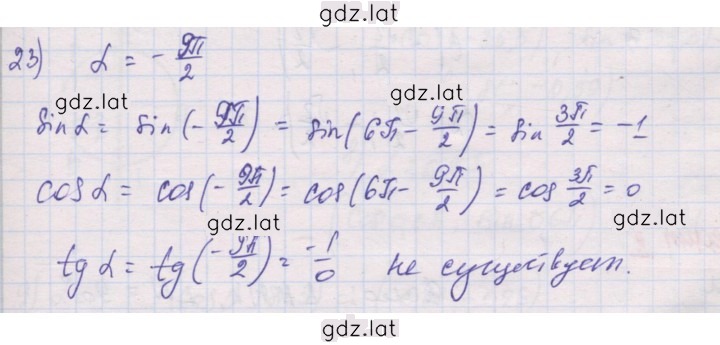 gdz.lat
23) α = - 9π/2
gdz.lat
sin α = sin(- 9π/2) = sin(6π - 9π/2) = sin 3π/2 = -1
gdz.lat
cos α = cos(- 9π/2) = cos(6π - 9π/2) = cos 3π/2 = 0
gdz.lat gdz.lat
tg α = tg(- 9π/2) = -1/0 не существует.
gdz.lat
gdz.lat